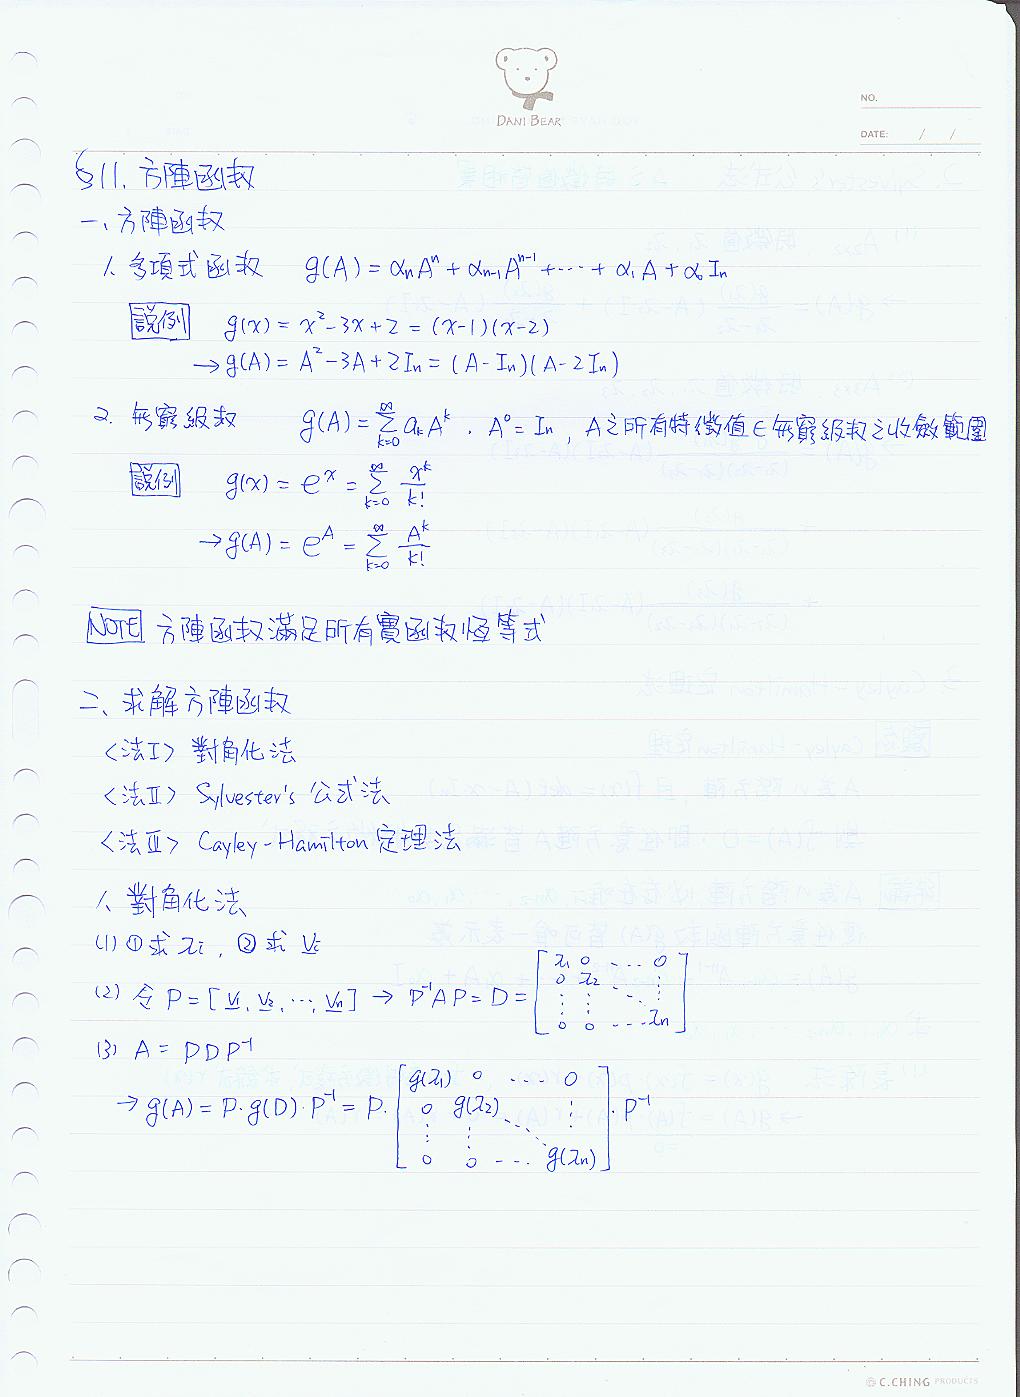 DANI BEAR
NO.
DATE: / /
§11. 方陣函数
一、方陣函数
1. 多項式函数 g(A) = αₙAⁿ + αₙ₋₁Aⁿ⁻¹ + ⋯ + α₁A + α₀Iₙ
説例 g(x) = x² - 3x + 2 = (x-1)(x-2)
→ g(A) = A² - 3A + 2Iₙ = (A-Iₙ)(A-2Iₙ)
2. 無窮級数 g(A) = ∑_{k=0}^{∞} aₖAᵏ . A⁰ = Iₙ , A之所有特徵值 ∈ 無窮級数之收斂範圍
説例 g(x) = eˣ = ∑_{k=0}^{∞} xᵏ/k!
→ g(A) = e^A = ∑_{k=0}^{∞} Aᵏ/k!
NOTE 方陣函数滿足所有實函数恆等式
二、求解方陣函数
<法I> 對角化法
<法II> Sylvester's 公式法
<法III> Cayley-Hamilton 定理法
1. 對角化法
(1) ① 求 λi , ② 求 Vi
(2) 令 P = [V₁, V₂, ⋯, Vₙ] → P⁻¹AP = D = [λ₁ 0 ⋯ 0
0 λ₂ ⋮
⋮ ⋮ ⋱ ⋮
0 0 ⋯ λₙ]
(3) A = PDP⁻¹
→ g(A) = P·g(D)·P⁻¹ = P·[g(λ₁) 0 ⋯ 0
0 g(λ₂) ⋮
⋮ ⋮ ⋱
0 0 ⋯ g(λₙ)]·P⁻¹
© C.CHING PRODUCTS